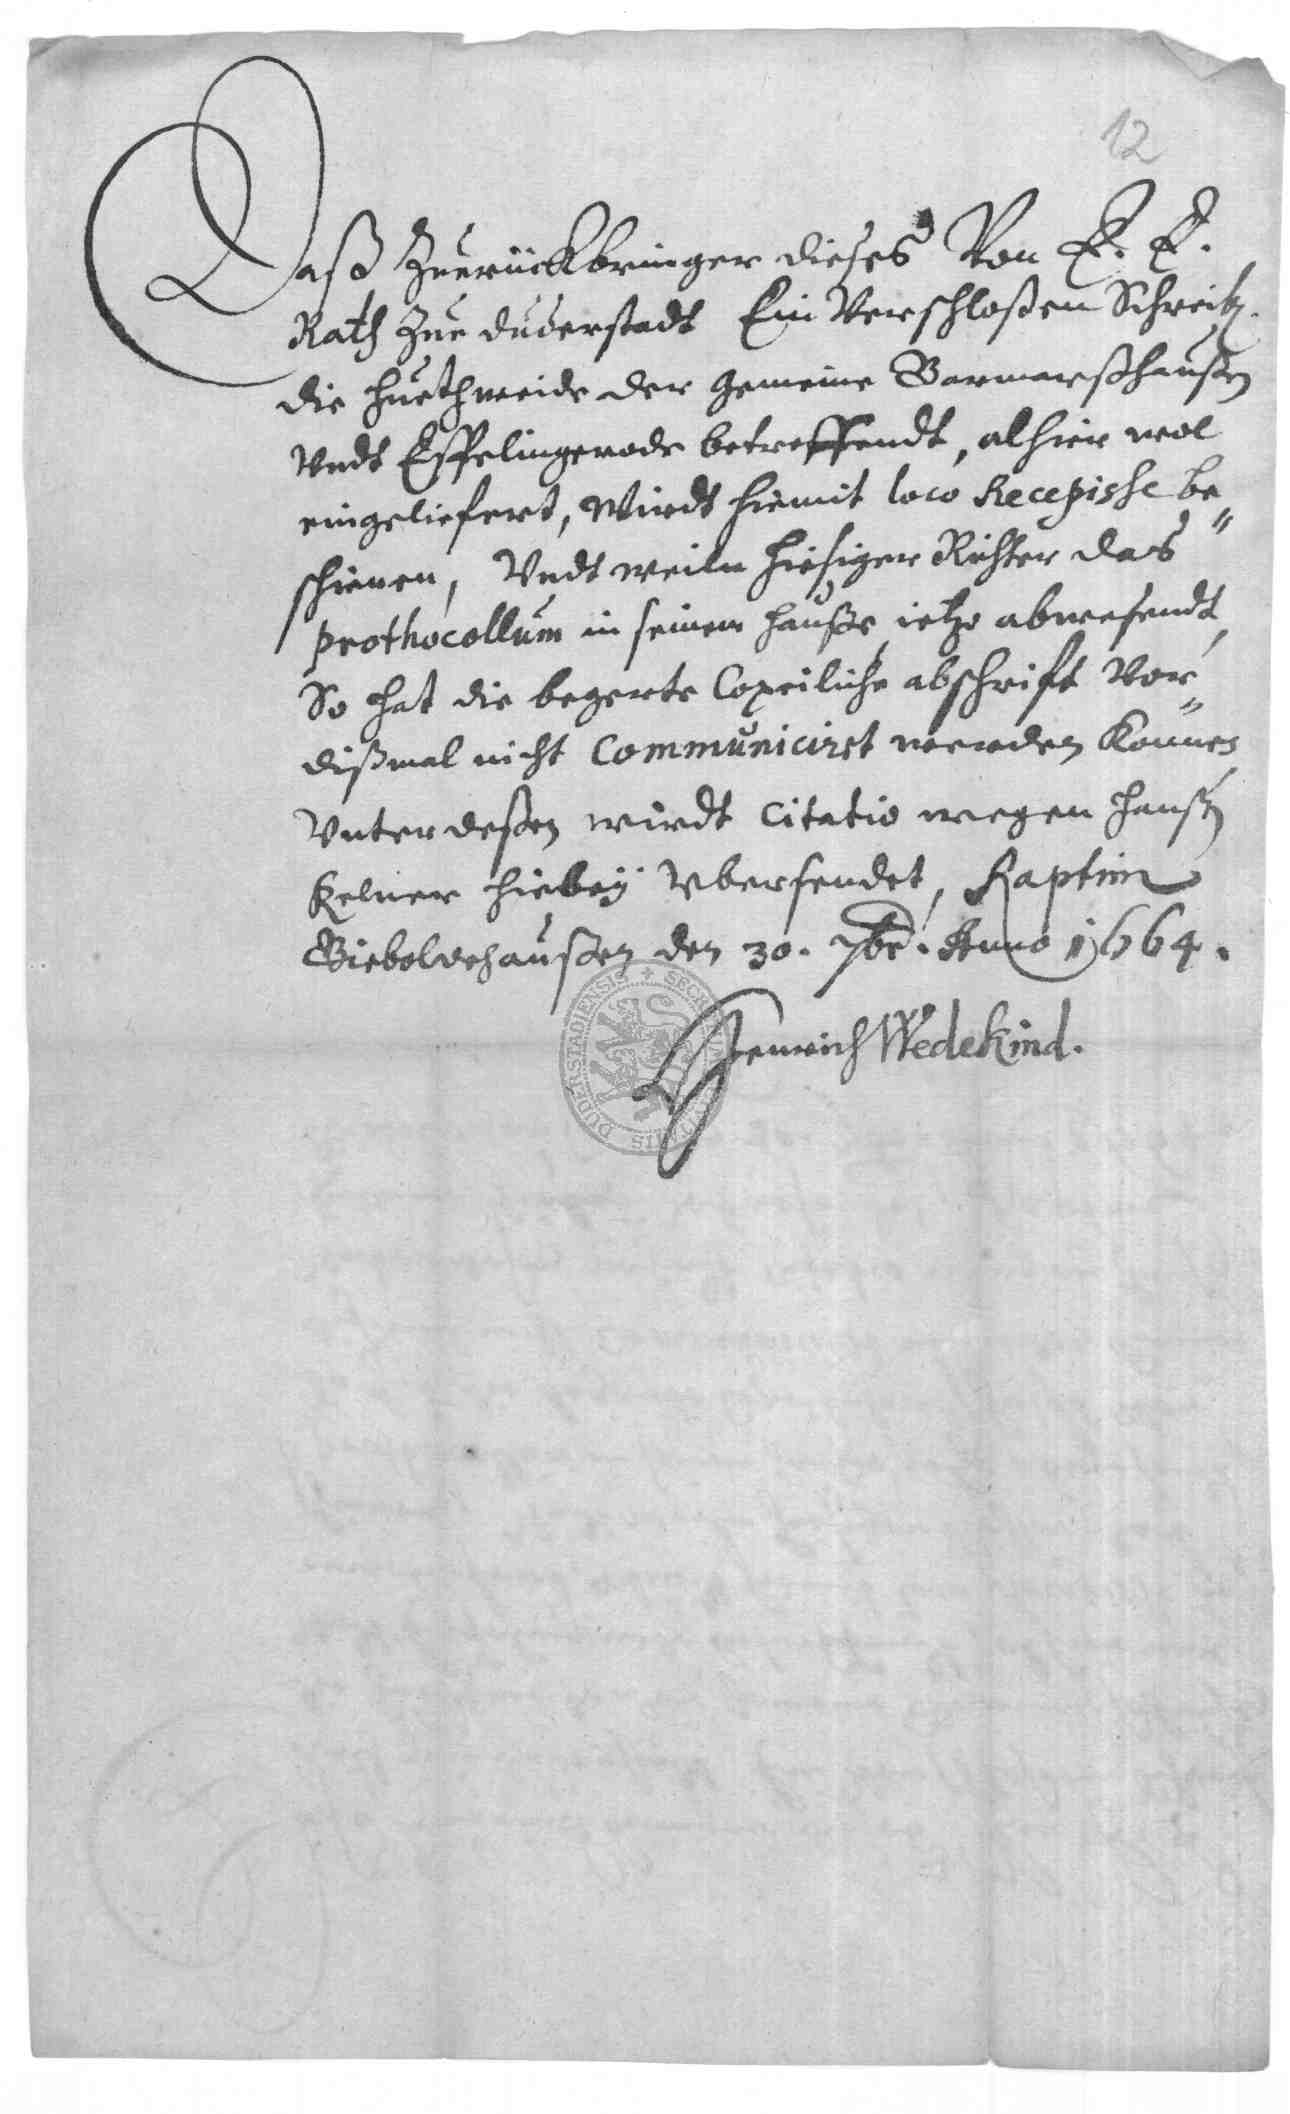 12
Daß Zuerückbringer dieses Von E. E.
Rath Zue duderstadt Ein Verschloßen Schreib.
die huethweide der gemeine Barmarßhaußen
Vndt Esselingerode betreffendt, alhier wol
eingeliefert, Wirdt hiemit loco Recepisse be=
schienen, Vndt weiln hiesiger Richter das
prothocollum in seinem hauße ietzo abwesendt,
So hat die begerte Copeiliche abschrift Vor=
dißmal nicht Communiciret werden Können
Vnterdeßen wirdt Citatio wegen hanß
Kelner hiebeÿ Vbersendet, Raptim
Gieboldehaußen den 30. 7br. Anno 1664.
Henrich Wedekind.
SECRETUM CIVITATIS DUDERSTADIENSIS